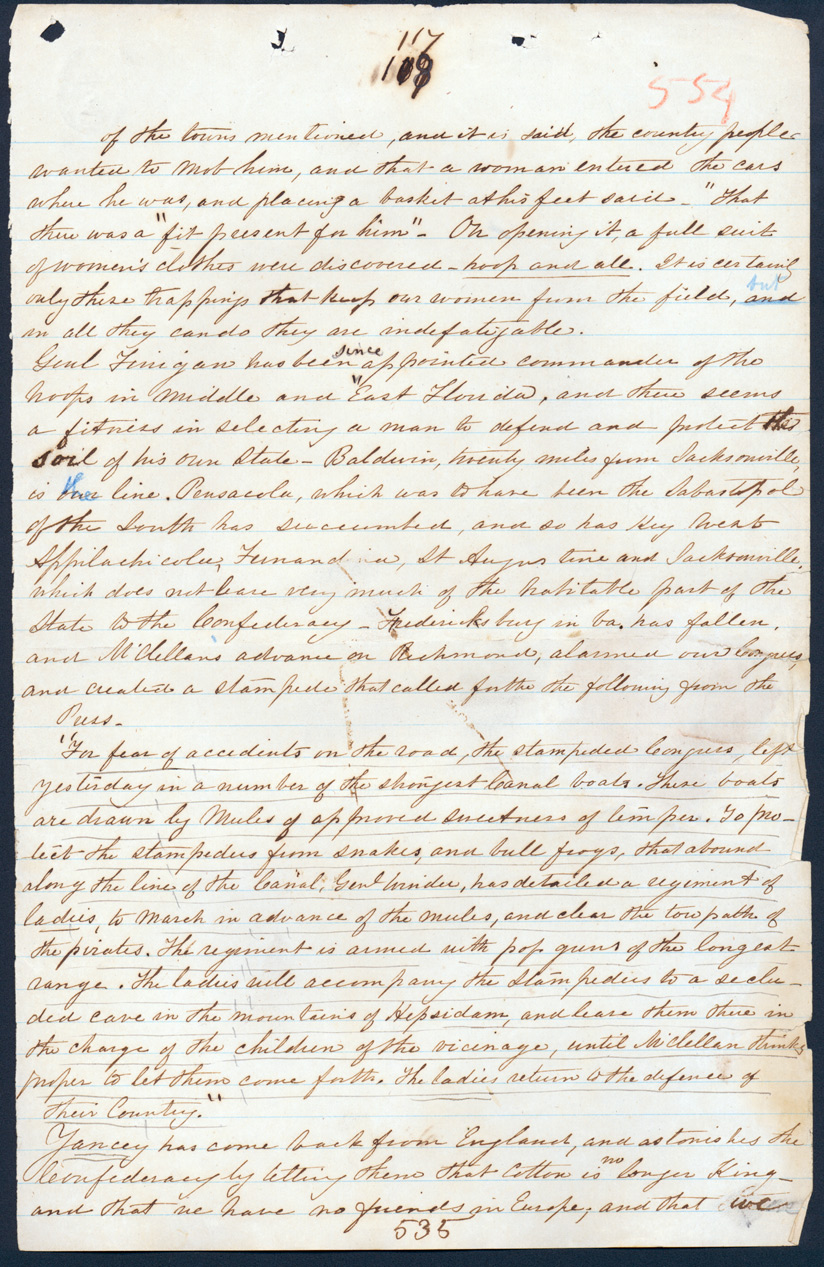 117
109
554
of the towns mentioned, and it is said, the county people
wanted to mob him, and that a woman entered the cars
where he was, and placing a basket at his feet said - "That
there was a "fit present for him" - On opening it, a full suit
of women's clothes were discovered - hoop and all. It is certainly
but
only these trappings that keep our women from the field, and
in all they can do they are indefatigable.
since
Genl Finigan has been appointed commander of the
troops in middle and "East Florida, and there seems
a fitness in selecting a man to defend and protect the
soil of his own State - Baldwin, twenty miles from Jacksonville,
is the line. Pensacola, which was to have been the Sabastopol
of the South has succumbed, and so has Key West
Appilachicola, Fernandina, St Augustine and Jacksonville,
which does not leave very much of the habitable part of the
State to the Confederacy - Fredericksburg in Va. has fallen,
and McClellans advance on Richmond, alarmed our Congress,
and created a stampede that called forth the following from the
Press -
"For fear of accidents on the road, the stampeded Congress, left
yesterday in a number of the strongest Canal boats. These boats
are drawn by Mules of approved sweetness of temper. To pro-
tect the stampeders from snakes, and bull frogs, that abound
along the line of the Canal, Genl Winder, has detailed a regiment of
ladies, to march in advance of the mules, and clear the tow path of
the pirates. The regiment is armed with pop guns of the longest
range. The ladies will accompany the stampeders to a seclu-
ded cave in the mountains of Hepsidam, and leave them there in
the charge of the children of the vicinage, until McClellan thinks
proper to let them come forth. The ladies return to the defence of
their Country."
Yancey has come back from England, and astonishes the
no
Confederacy by telling them that Cotton is longer King -
and that we have no friends in Europe, and that we
535